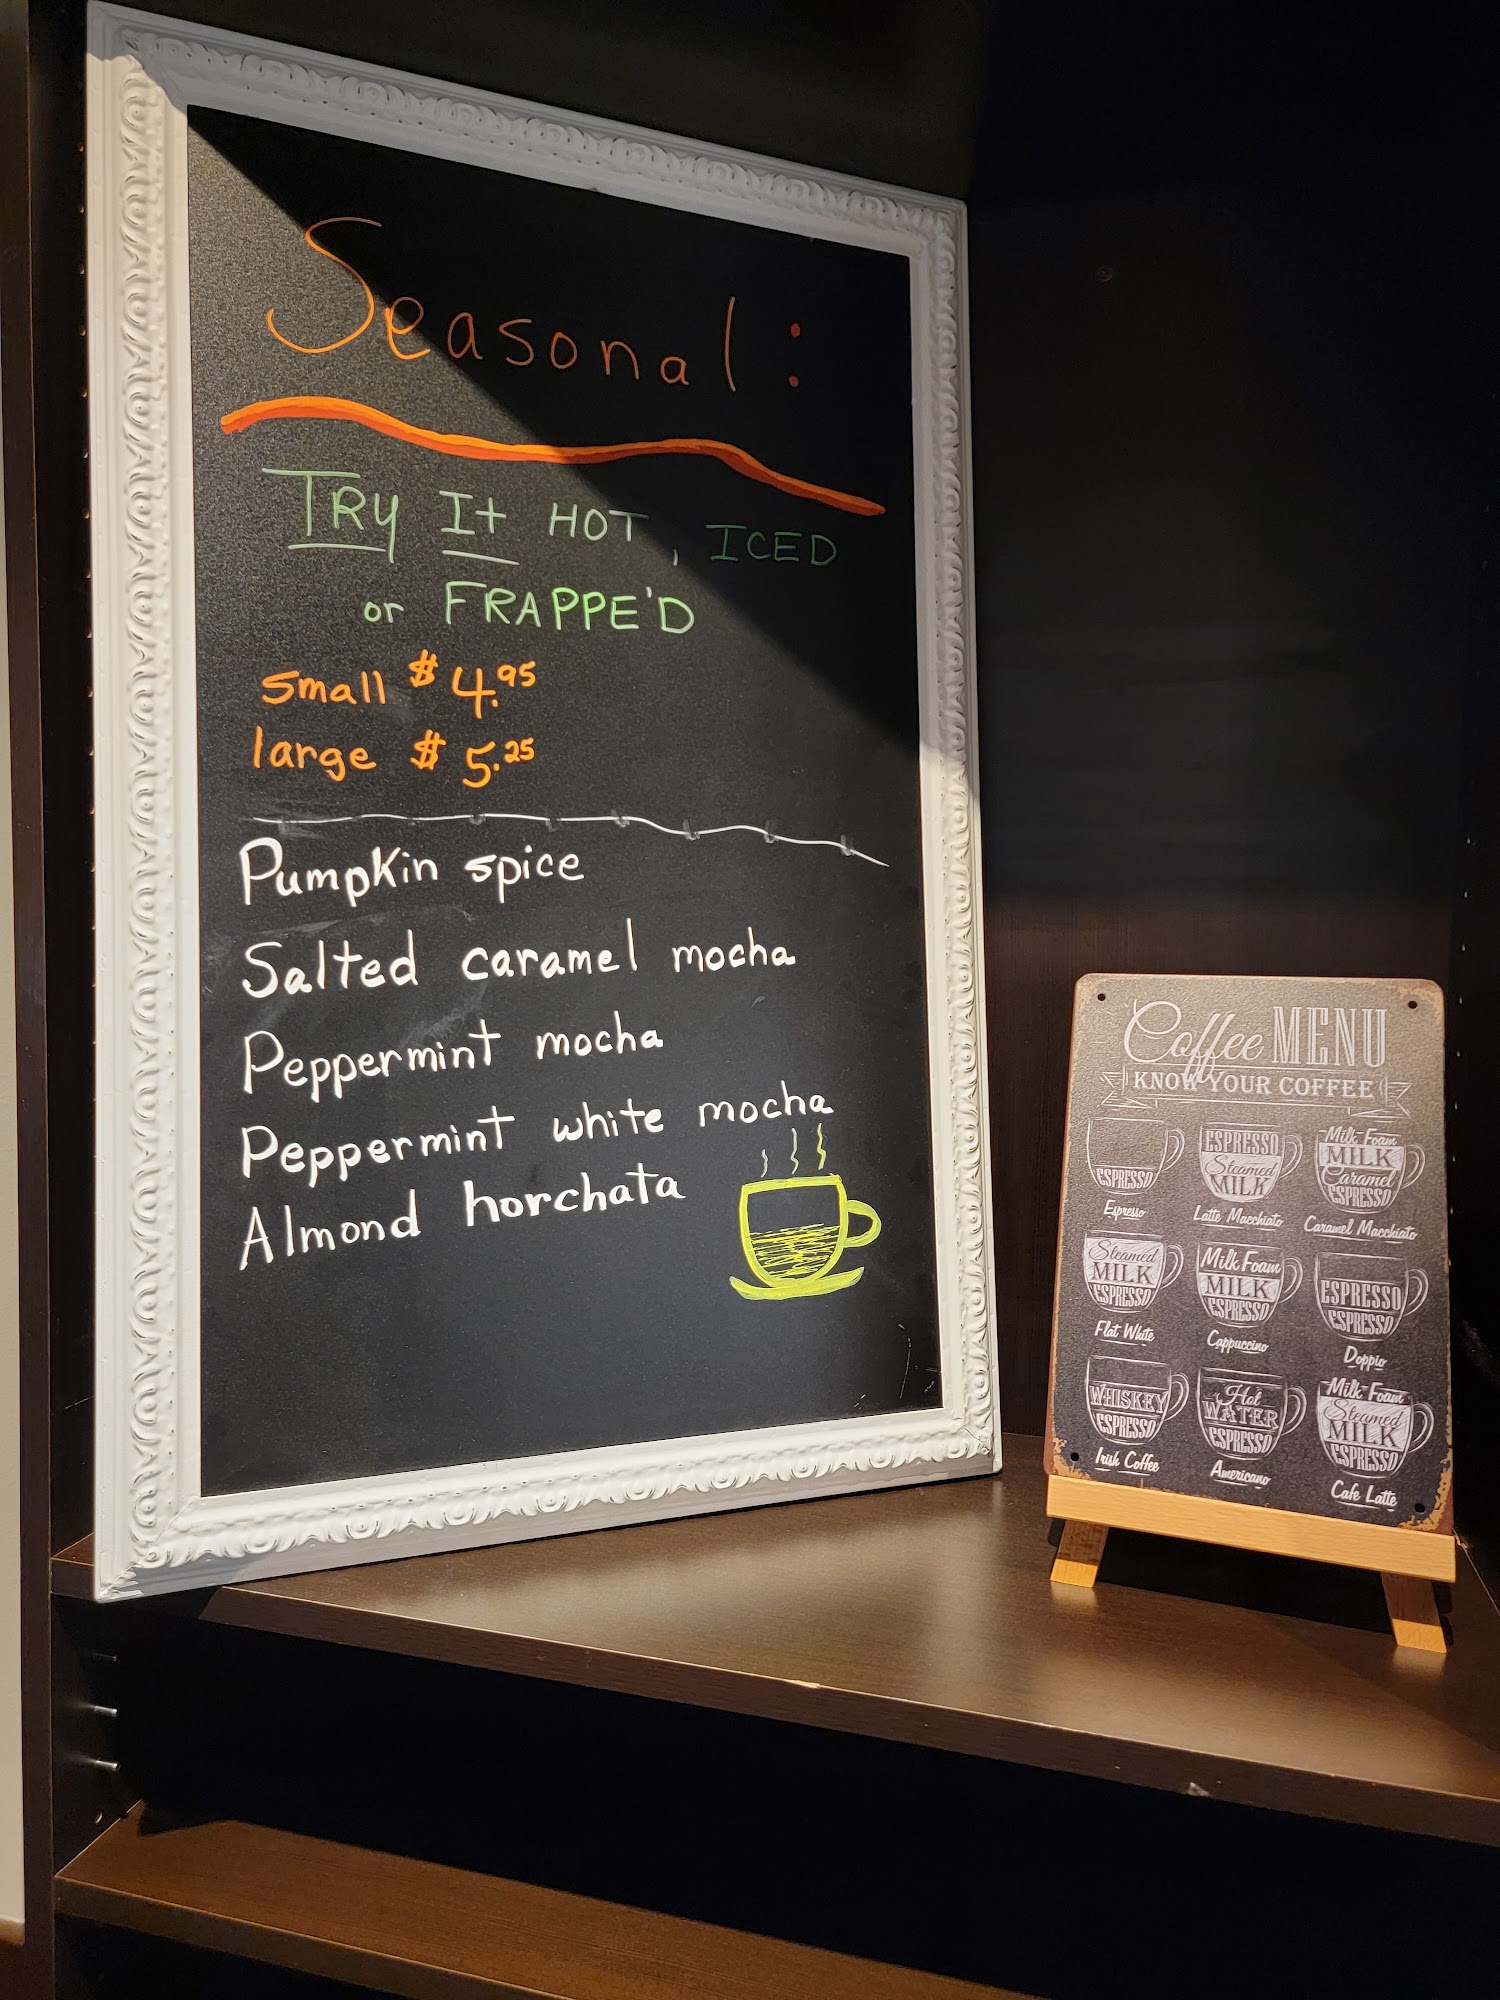 Seasonal:
TRY It HOT, ICED
or FRAPPE'D
small $4.95
large $5.25
Pumpkin spice
Salted caramel mocha
Peppermint mocha
Peppermint white mocha
Almond horchata
Coffee MENU
KNOW YOUR COFFEE
ESPRESSO
Espresso
ESPRESSO
Steamed
MILK
Latte Macchiato
Milk Foam
MILK
Caramel
ESPRESSO
Caramel Macchiato
Steamed
MILK
ESPRESSO
Flat White
Milk Foam
MILK
ESPRESSO
Cappuccino
ESPRESSO
ESPRESSO
Doppio
WHISKEY
ESPRESSO
Irish Coffee
Hot
WATER
ESPRESSO
Americano
Milk Foam
Steamed
MILK
ESPRESSO
Cafe Latte